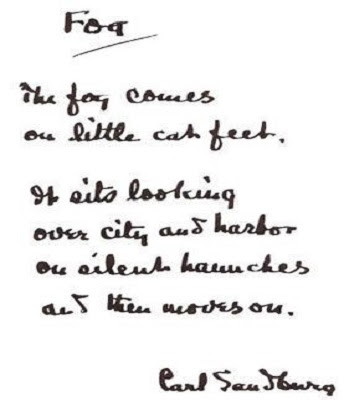 Fog
The fog comes
on little cat feet.
It sits looking
over city and harbor
on silent haunches
and then moves on.
Carl Sandburg